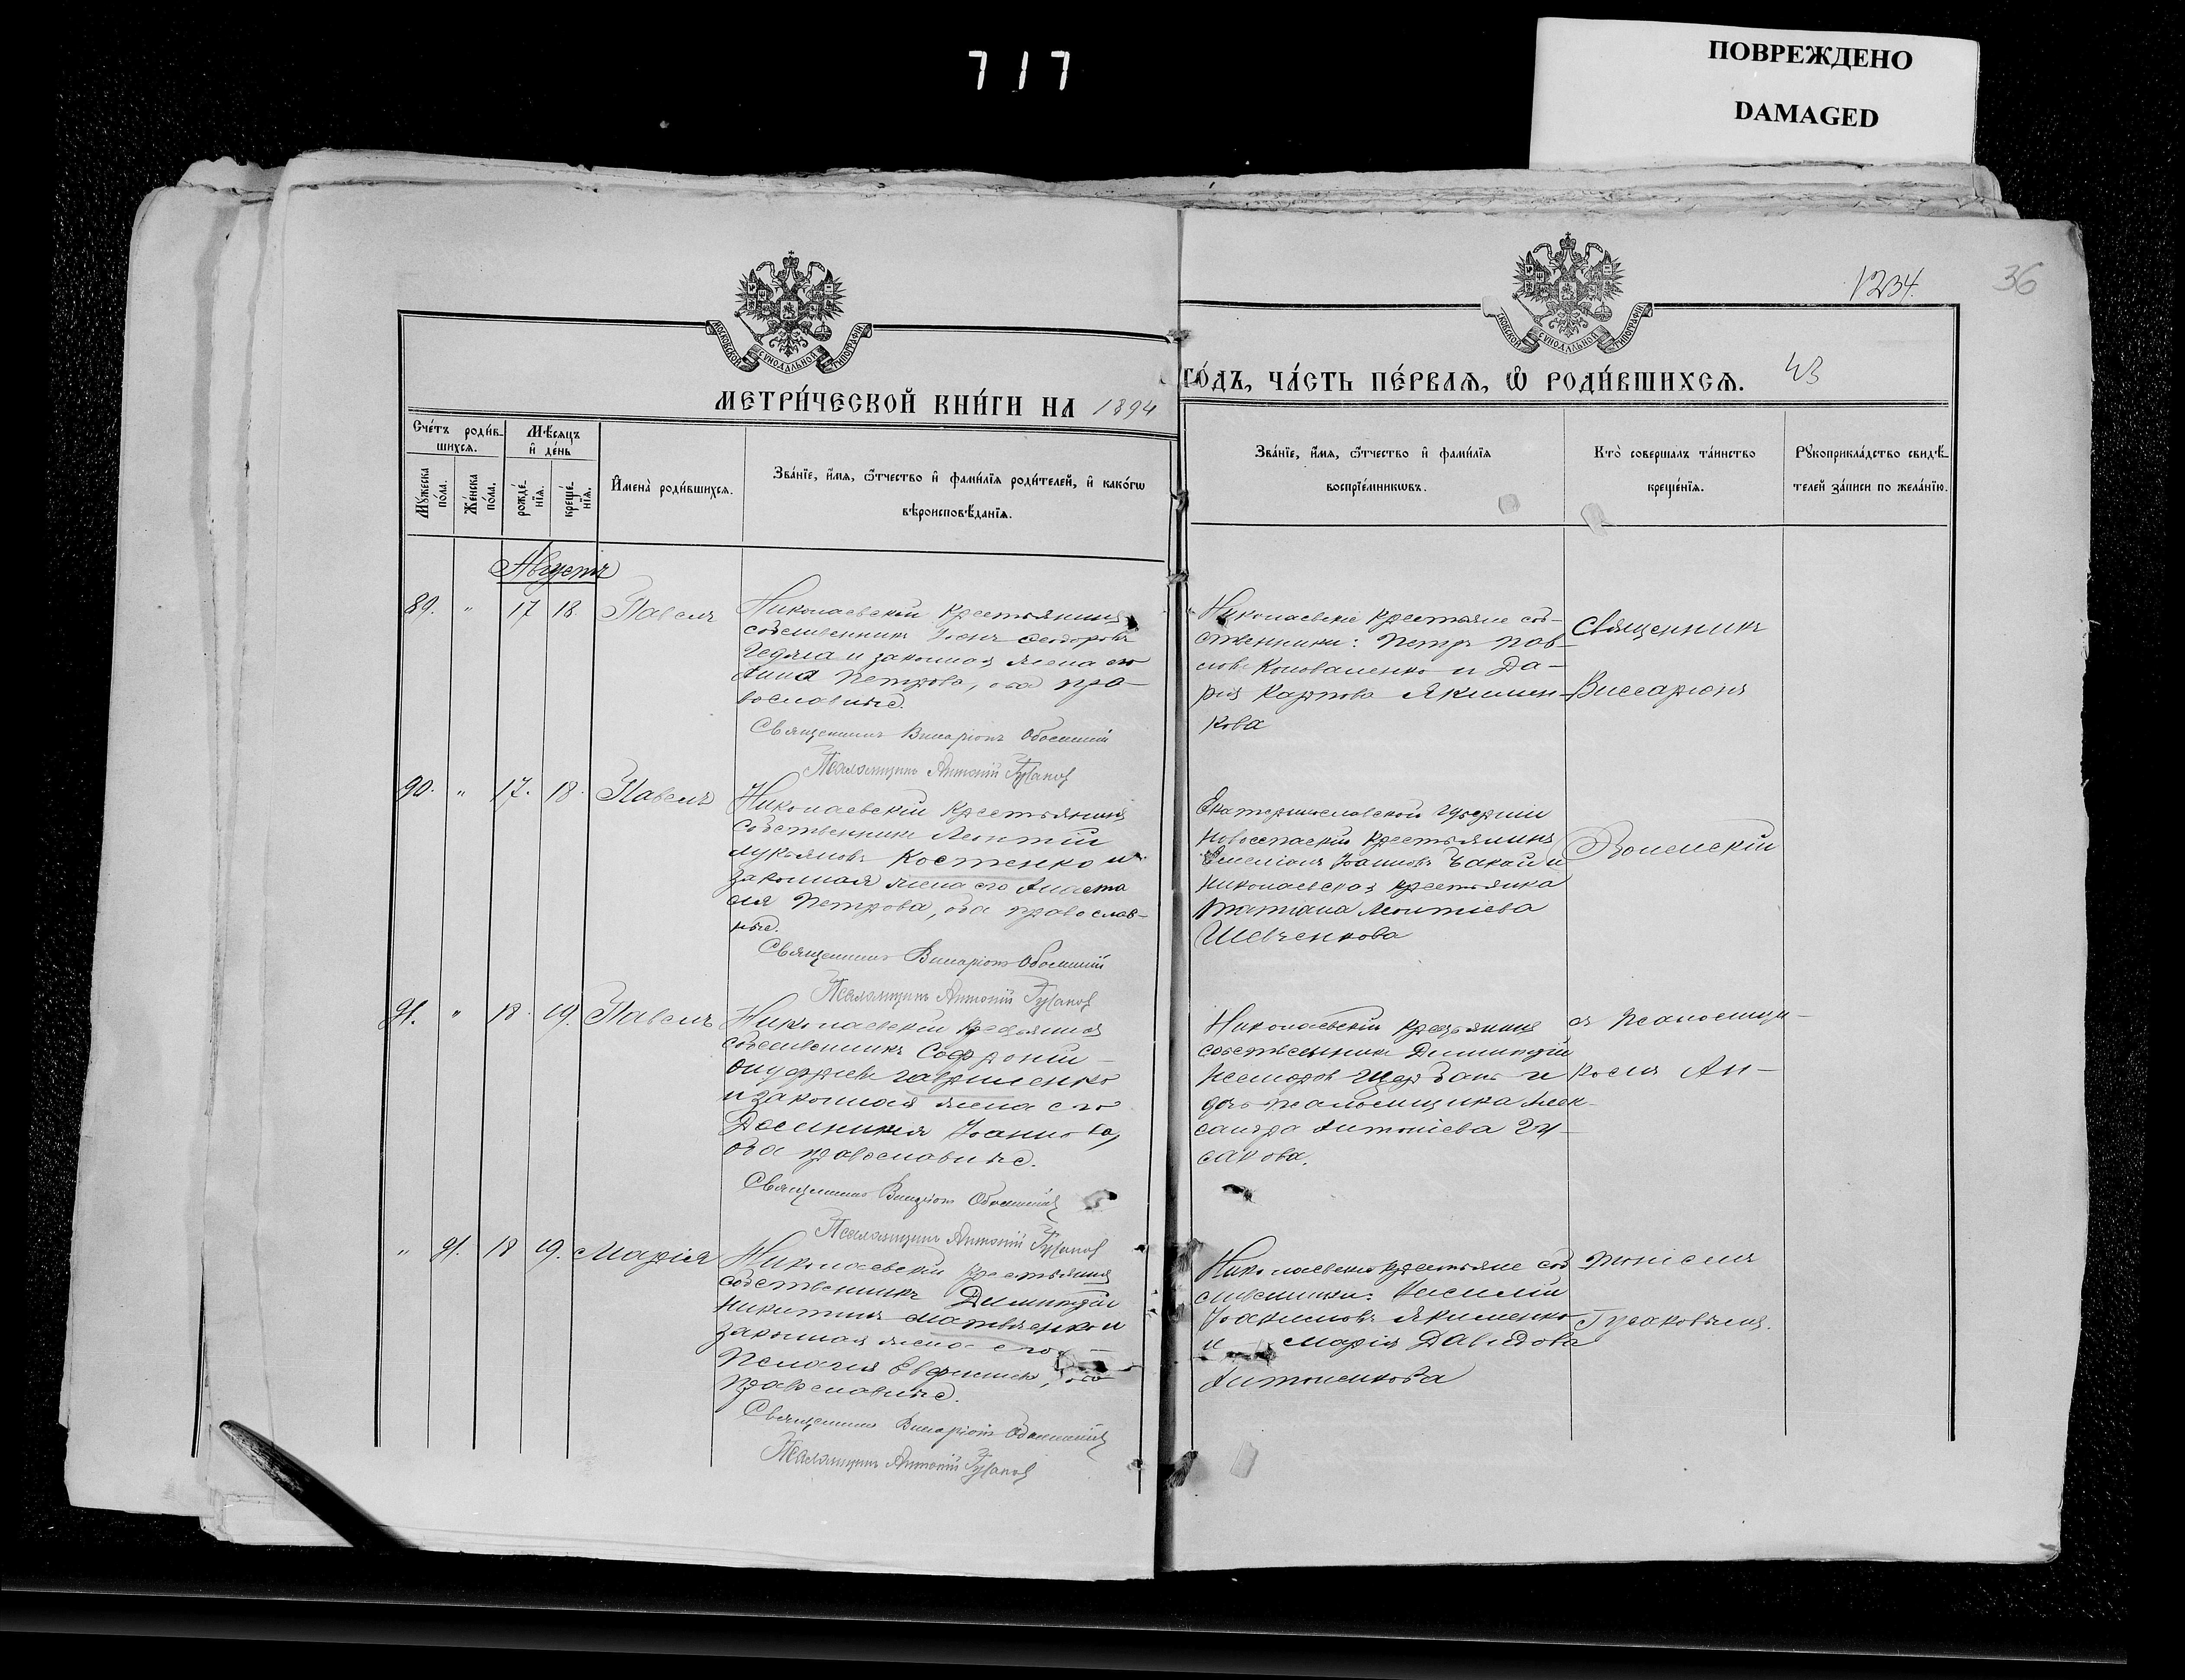 717
ПОВРЕЖДЕНО
DAMAGED
1234.
36
МОСКОВСКОЙ СѴНОДАЛЬНОЙ ТИПОГРАФІИ
МЕТРИ́ЧЕСКОЙ КНИ́ГИ НА 1894
ГО́ДЪ, ЧА́СТЬ ПЕ́РВАѦ, Ѡ҆ РОДИ́ВШИХСѦ.
Сче́тъ роди́в-
шихсѧ.
Мꙋ́жеска по́ла.
Же́нска по́ла.
Мѣ́сѧцъ
и҆ де́нь
рожде́-
нїѧ.
креще́-
нїѧ.
И҆мена̀ роди́вшихсѧ.
Зва́нїе, и҆́мѧ, ѻ҆́тчество и҆ фами́лїѧ роди́телей, и҆ како́гѡ
вѣроисповѣ́данїѧ.
Зва́нїе, и҆́мѧ, ѻ҆́тчество и҆ фами́лїѧ
воспрїе́мникѡвъ.
Кто̀ соверша́лъ та́инство
креще́нїѧ.
Рꙋкоприкла́дство свидѣ́-
телей за́писи по жела́нїю.
Августъ
89. " 17 18. Павелъ
Николаевскій крестьянинъ
собственникъ Іоанъ Феодоровъ
и законная жена его
Анна Петрова, оба пра-
вославные.
Священникъ Виссаріонъ
Псаломщикъ Антоній Гусаковъ
Николаевскіе крестьяне соб-
ственники: Петръ Пав-
ловъ Коноваленко и Да-
рія Карпова Якимен-
кова
Священникъ
Виссаріонъ
90. " 17. 18. Павелъ
Николаевскій крестьянинъ
собственникъ Леонтій
Лукьяновъ Костенко и
законная жена его Анаста
сія Петрова, оба православ-
ные.
Священникъ Виссаріонъ
Псаломщикъ Антоній Гусаковъ
Екатеринославской губерніи
Новоспаскій крестьянинъ
Емеліанъ Іоанновъ Бакай и
Николаевская крестьянка
Татіана Леонтіева
Шевченкова
91. " 18. 19. Павелъ
Николаевскій крестьянинъ
собственникъ Софроній
Онуфріевъ Гавриленко
и законная жена его
Домникія Іоаннова,
оба православные.
Священникъ Виссаріонъ
Псаломщикъ Антоній Гусаковъ
Николаевскій крестьянинъ
собственникъ Димитрій
Несторов Щербань и
дочь псаломщика Алек-
сандра Антоніева Гу-
сакова.
съ псаломщи-
комъ Ан-
" 91. 18 19. Марія
Николаевскій крестьянинъ
собственникъ Димитрій
Никитинъ Матвѣенко и
законная жена его
Пелагія Евфимова, оба
православные.
Священникъ Виссаріонъ
Псаломщикъ Антоній Гусаковъ
Николаевскіе крестьяне соб
ственники: Василій
Іоакимовъ Якименко
и Марія Давидова
Антоненкова
тоніемъ
Гусаковымъ.